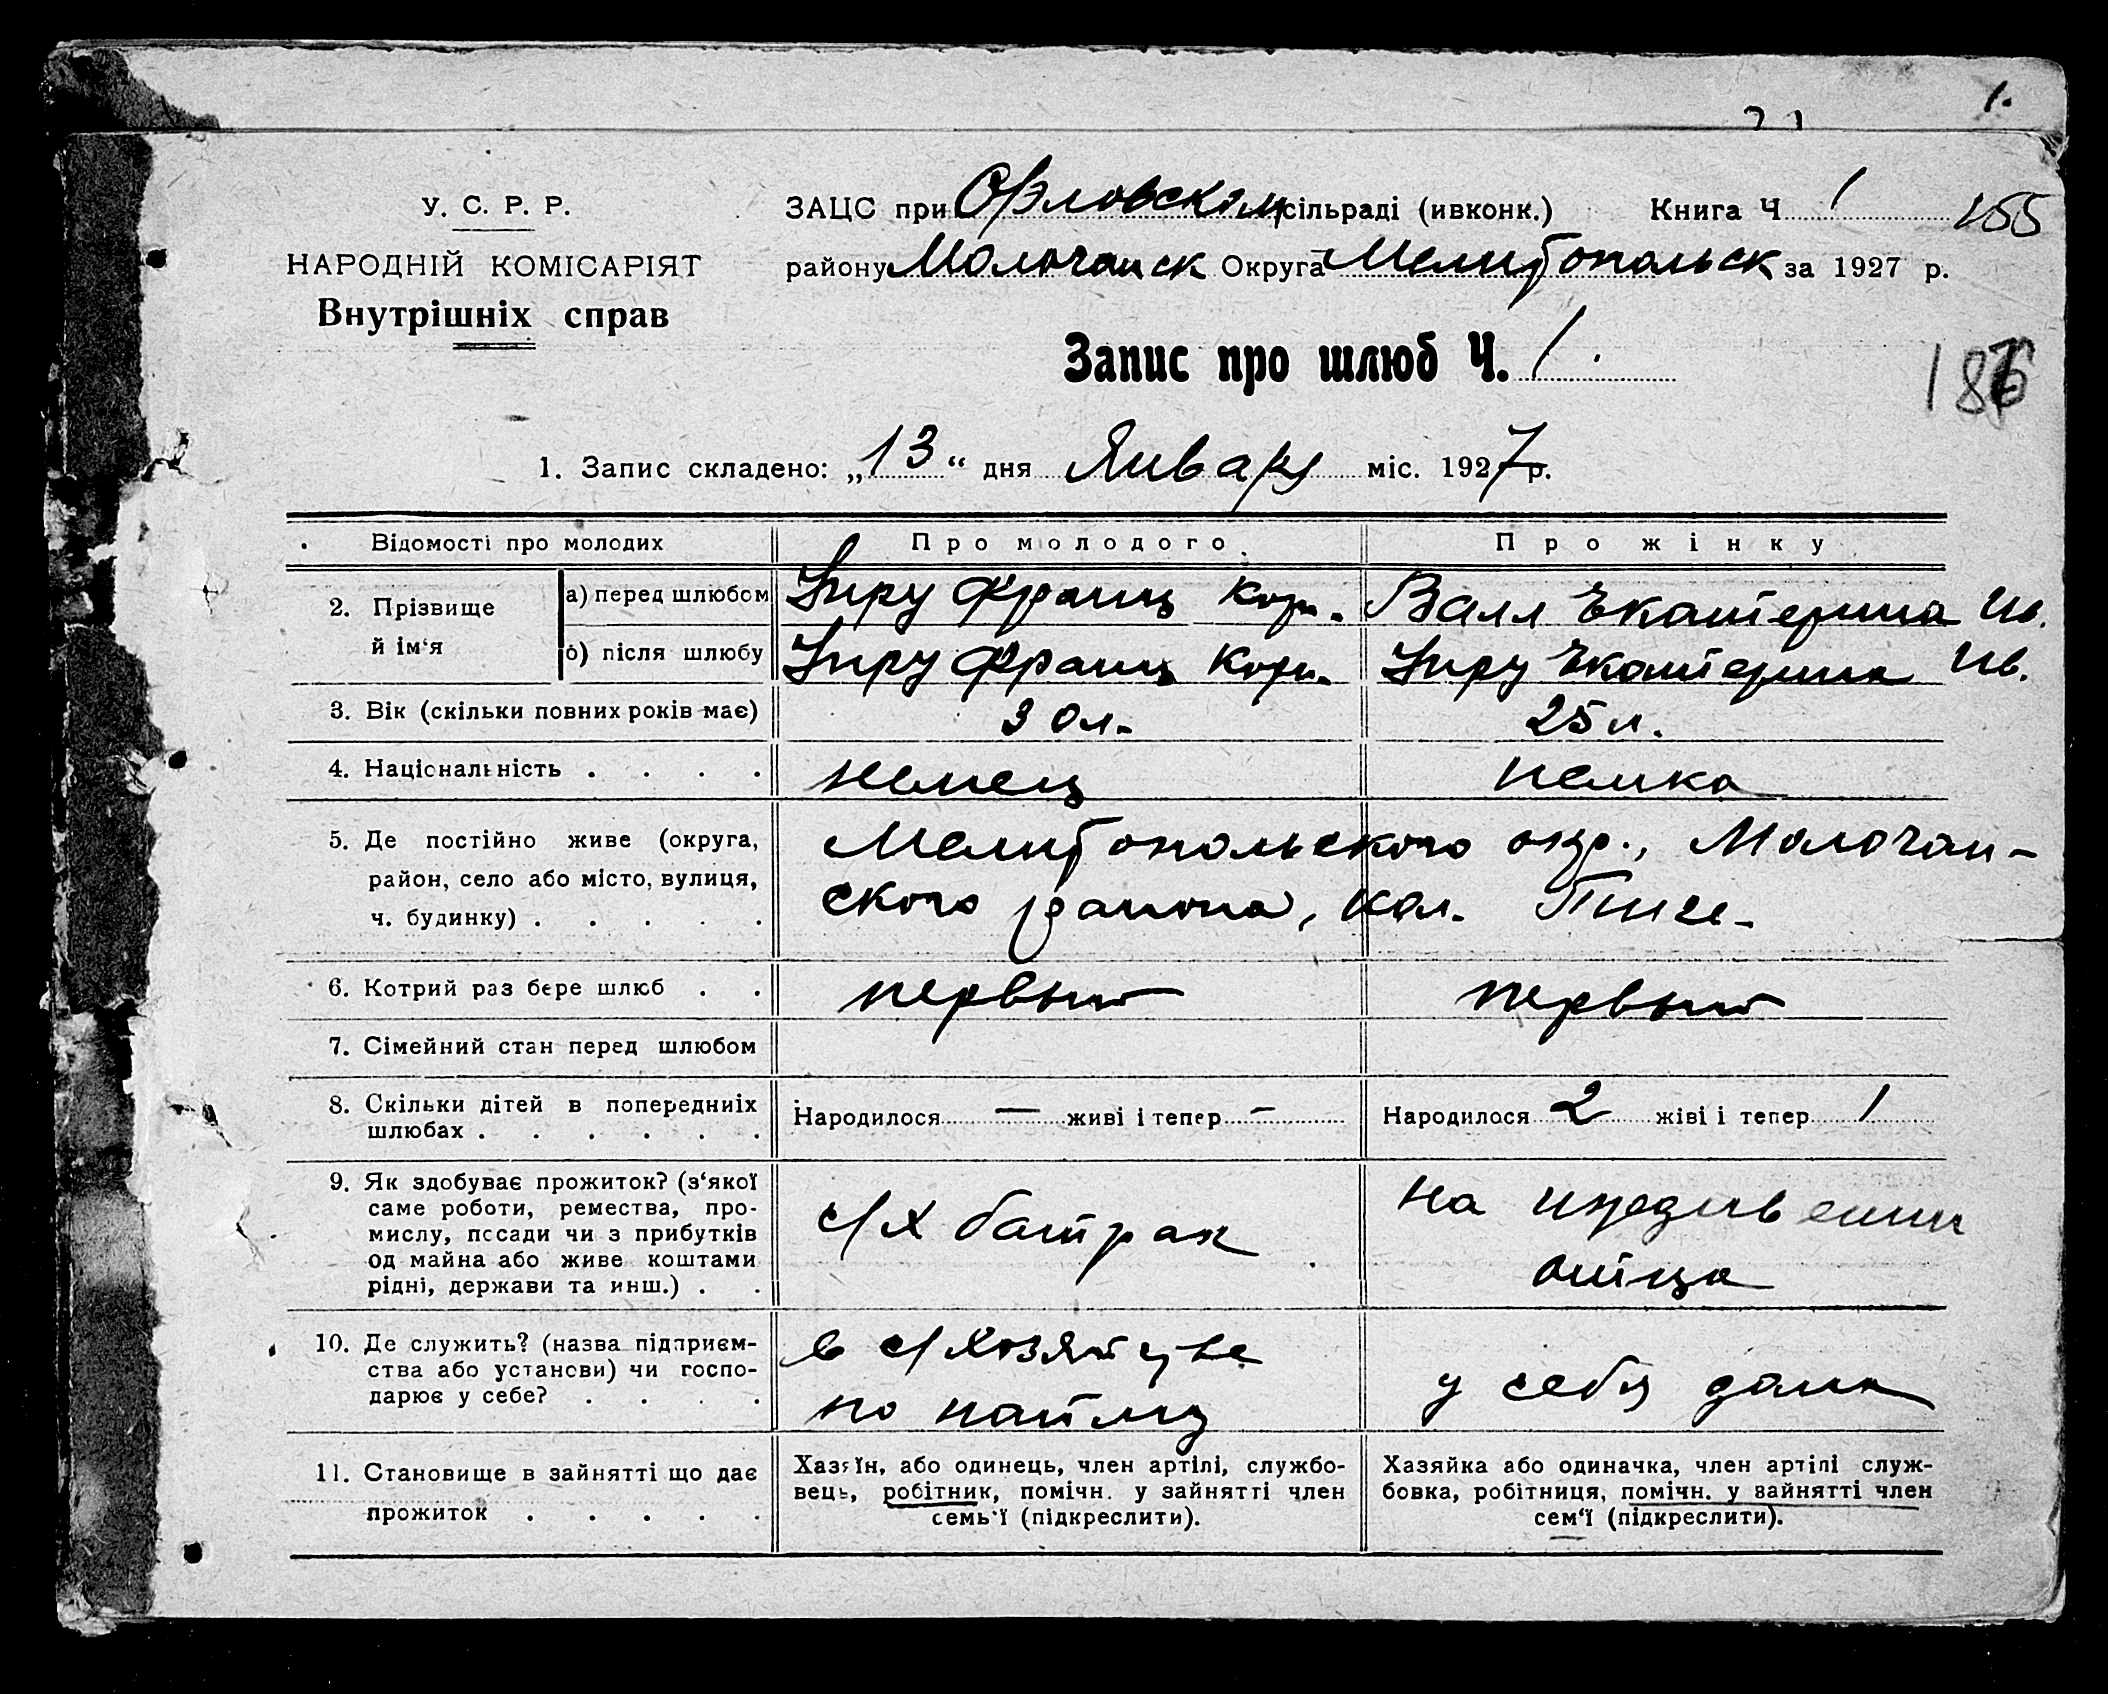 1.
У. С. Р. Р.
НАРОДНІЙ КОМІСАРІЯТ
Внутрішніх справ
ЗАЦС при Орловском сільраді (ивконк.) Книга Ч 1 155
району Молочанск Округа Мелитопольск за 1927 р.
Запис про шлюб Ч. 1.
1. Запис складено: „13“ дня Января міс. 1927 р.
Відомості про молодих Про молодого. Про жінку
2. Прізвище й ім‘я
а) перед шлюбом Унру Франц Корн. Валл Екатерина Ив.
б) після шлюбу Унру Франц Корн. Унру Екатерина Ив.
3. Вік (скільки повних років має) 30 л. 25 л.
4. Національність . . . . немец немка
5. Де постійно живе (округа, Мелитопольского окр., Молочан-
район, село або місто, вулиця, ского района, кол. Тиге.
ч. будинку) . . . . .
6. Котрий раз бере шлюб . . первый первый
7. Сімейний стан перед шлюбом
8. Скільки дітей в попередниіх Народилося — живі і тепер — Народилося 2 жіві і тепер 1
шлюбах . . . . . .
9. Як здобуває прожиток? (з‘якої
саме роботи, ремества, про-
мислу, посади чи з прибутків
од майна або живе коштами
рідні, держави та инш.) . .
с/х батрак
на иждивении
отца
10. Де служить? (назва підприєм-
ства або установи) чи госпо-
дарює у себе? . . . .
в с/хозяйстве
по найму
у себя дома
11. Становище в зайнятті що дає
прожиток . . . . .
Хазяїн, або одинець, член артілі, службо-
вець, робітник, помічн. у зайнятті член
семь‘ї (підкреслити).
Хазяйка або одиначка, член артілі служ-
бовка, робітниця, помічн. у зайнятті член
сем‘ї (підкреслити).